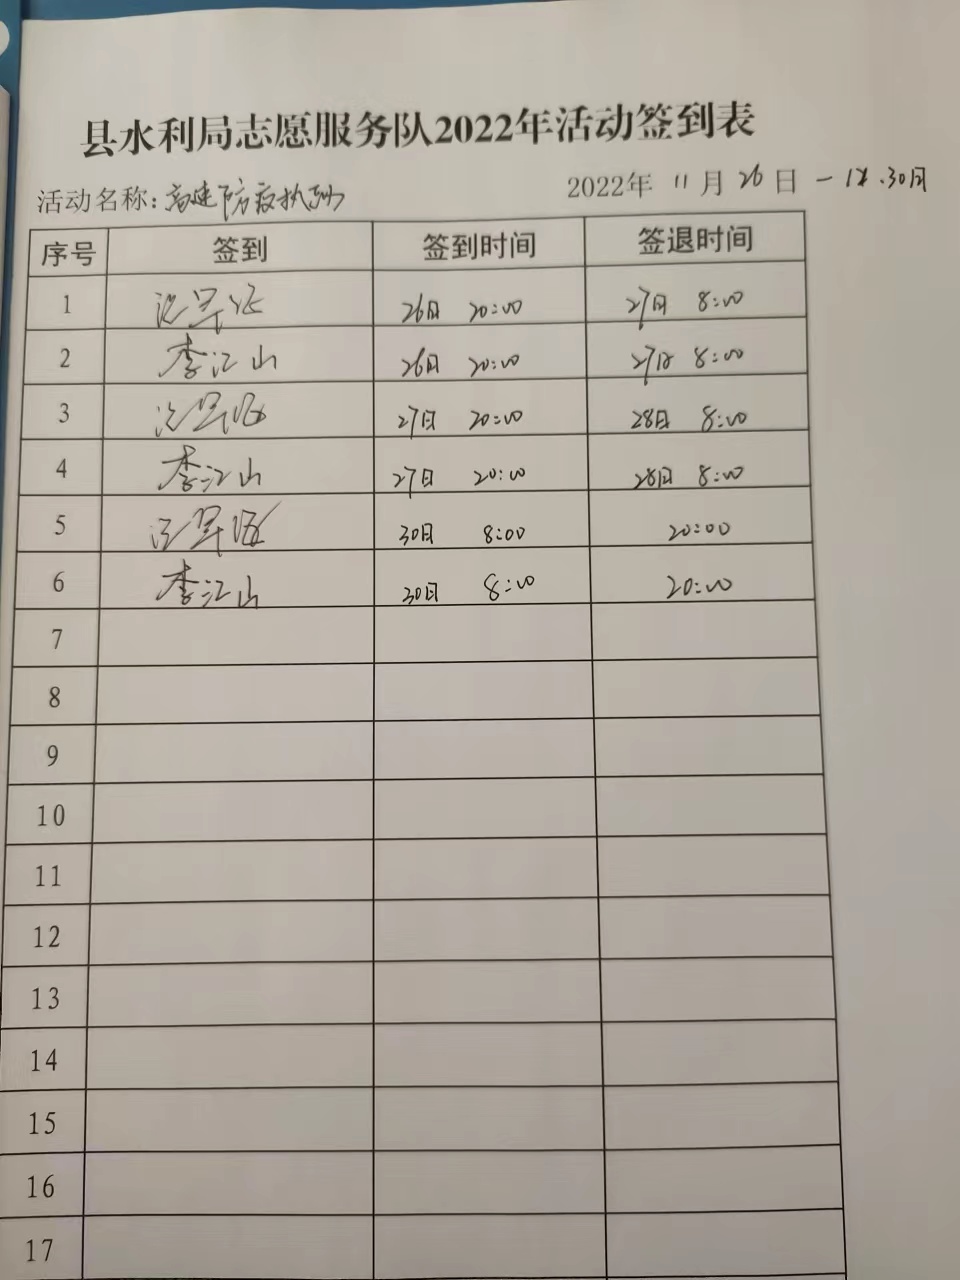 县水利局志愿服务队2022年活动签到表
活动名称:高速防疫执勤 2022年 11月 26日 一 30日
序号 签到 签到时间 签退时间
1 26日 20:00 27日 8:00
2 李江山 26日 20:00 27日 8:00
3 27日 20:00 28日 8:00
4 李江山 27日 20:00 28日 8:00
5 30日 8:00 20:00
6 李江山 30日 8:00 20:00
7
8
9
10
11
12
13
14
15
16
17